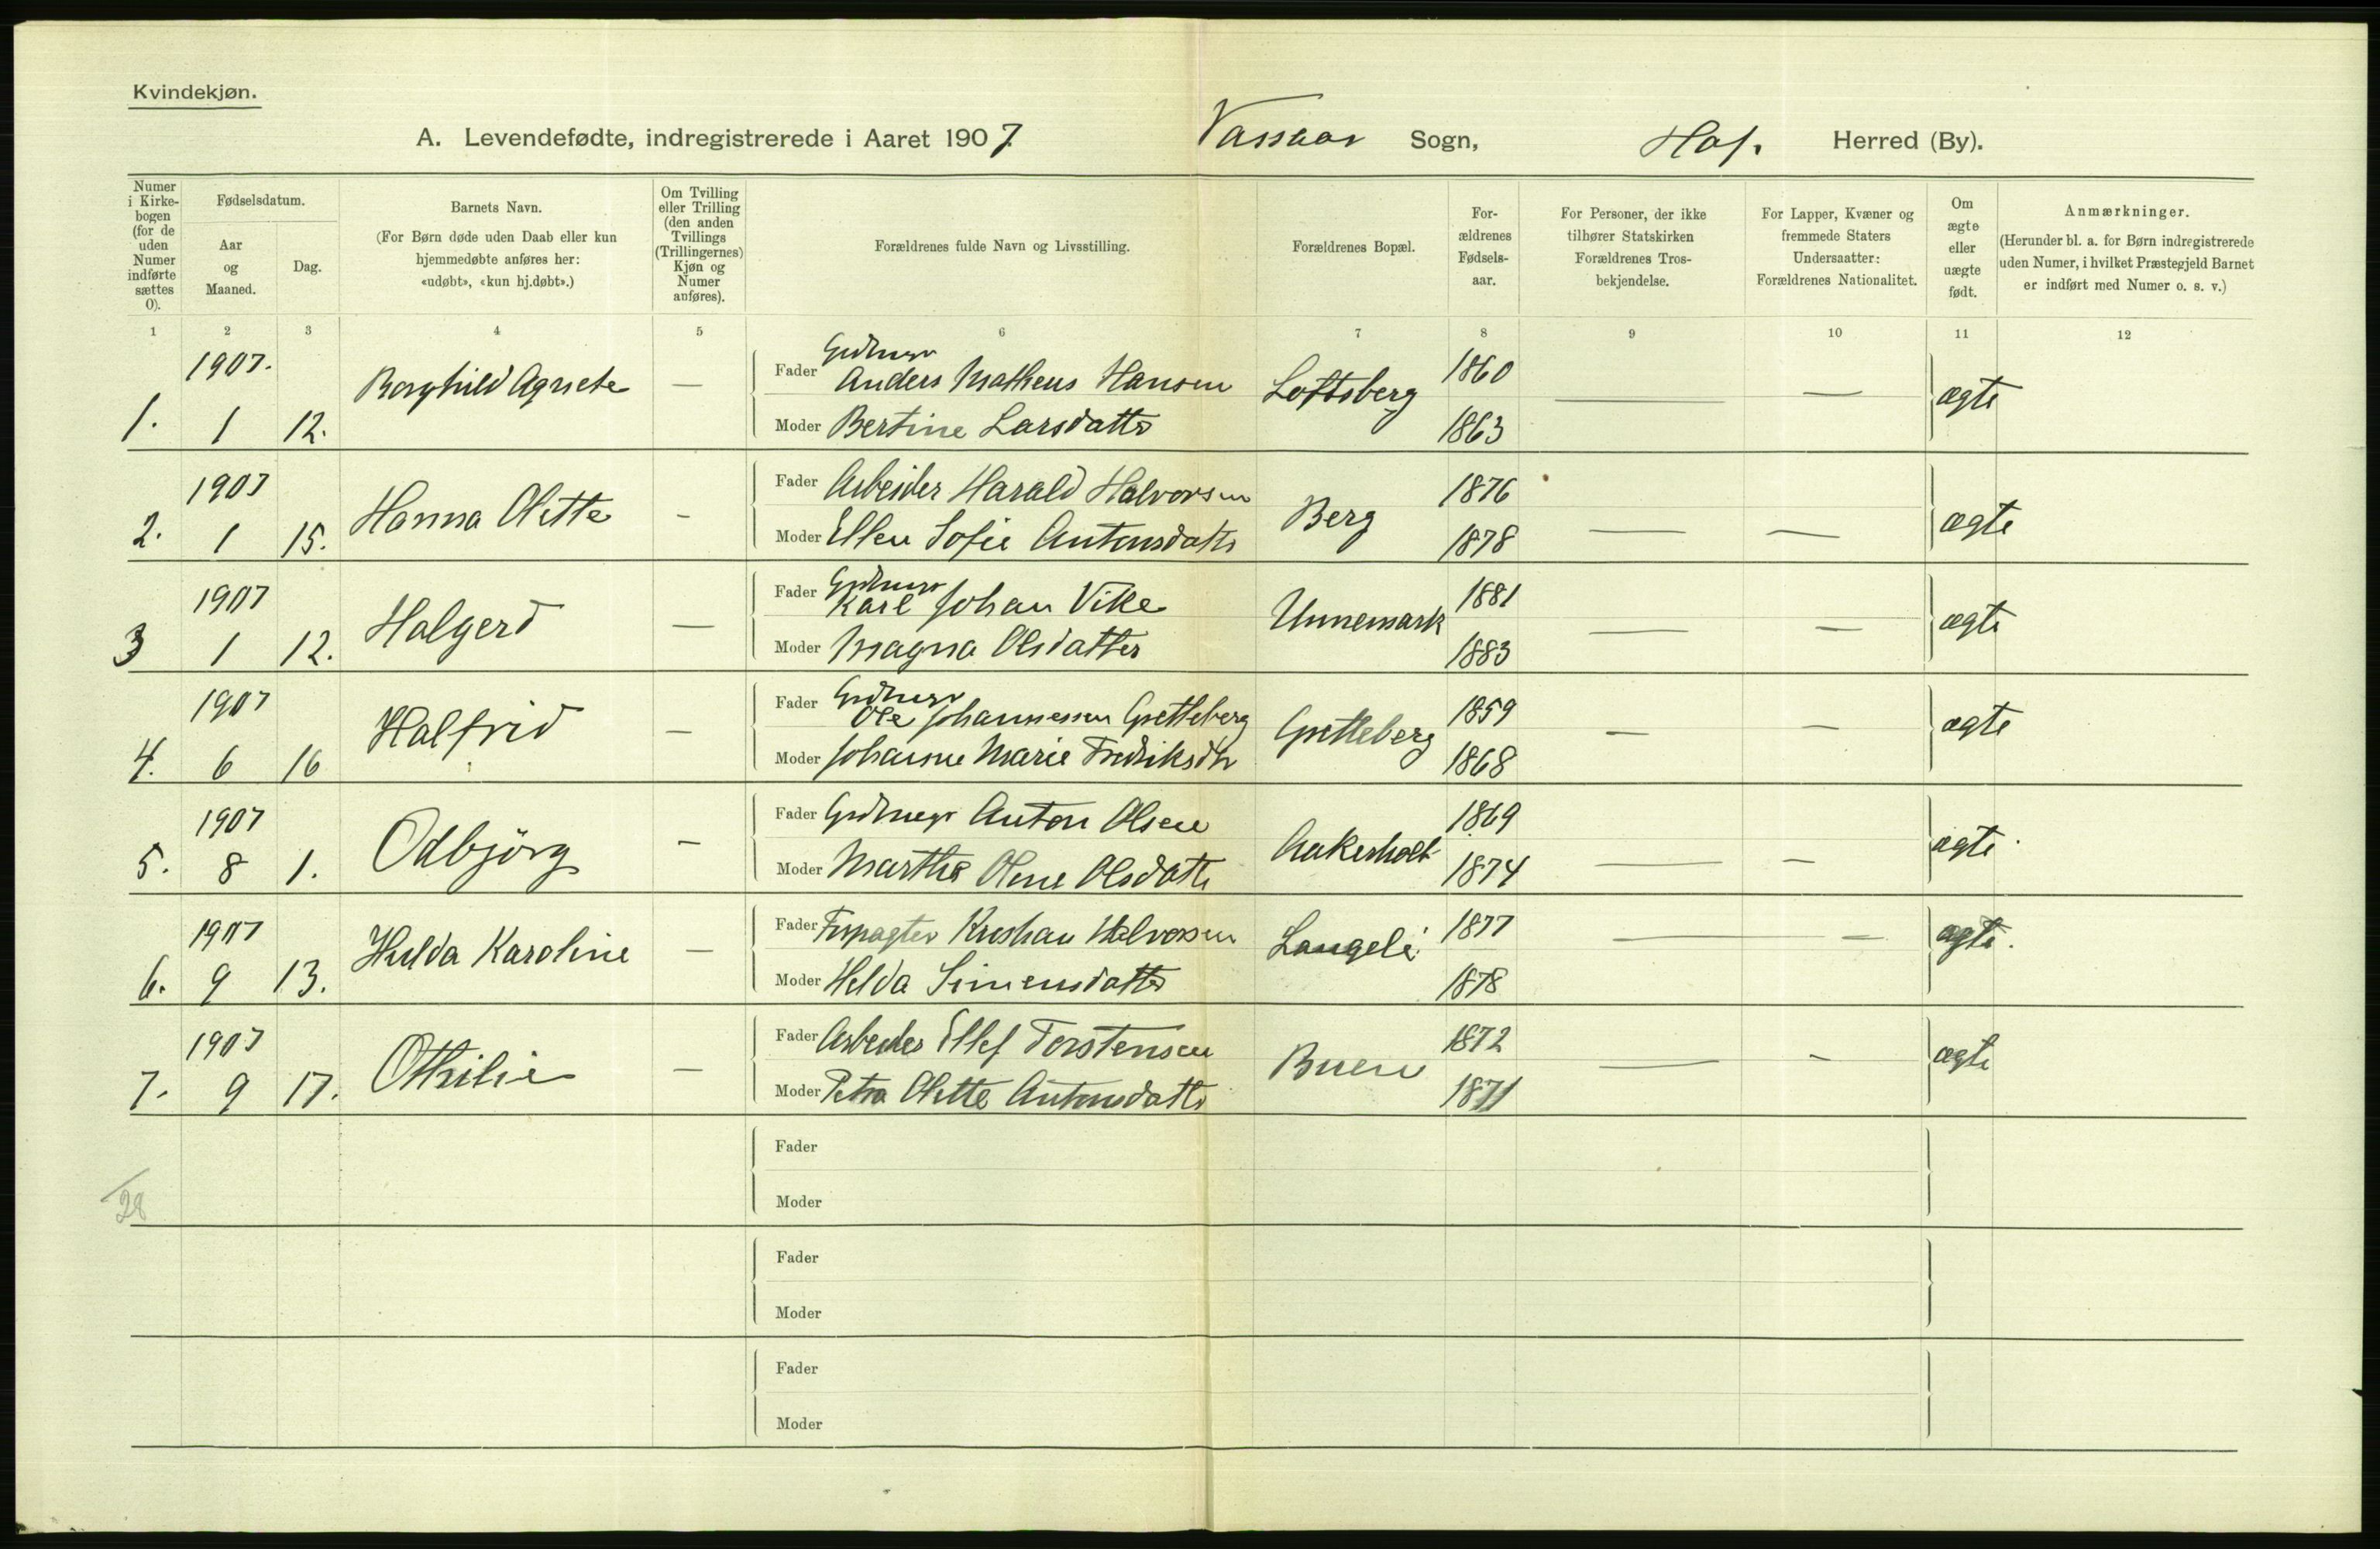 Kvindekjøn.
A. Levendefødte, indregistrerede i Aaret 1907. Vassaas Sogn, Hof. Herred (By).
Numer i Kirkebogen (for de uden Numer indførte sættes 0).
Fødselsdatum.
Aar og Maaned.
Dag.
Barnets Navn.
(For Børn døde uden Daab eller kun hjemmedøbte anføres her: «udøbt», «kun hj.døbt».)
Om Tvilling eller Trilling (den anden Tvillings (Trillingernes) Kjøn og Numer anføres).
Forældrenes fulde Navn og Livsstilling.
Forældrenes Bopæl.
Forældrenes Fødselsaar.
For Personer, der ikke tilhører Statskirken Forældrenes Trosbekjendelse.
For Lapper, Kvæner og fremmede Staters Undersaatter: Forældrenes Nationalitet.
Om ægte eller uægte født.
Anmærkninger.
(Herunder bl. a. for Børn indregistrerede uden Numer, i hvilket Præstegjeld Barnet er indført med Numer o. s. v.)
1 2 3 4 5 6 7 8 9 10 11 12
1. 1907. 1 12. Borghild Agnete — Fader Grdmgr Anders Matheus Hansen Loftsberg 1860 — — ægte
Moder Bertine Larsdatter 1863
2. 1907 1 15. Hanna Olette - Fader Arbeider Harald Halvorsen Berg 1876 — — ægte
Moder Ellen Sofie Antonsdattr 1878
3 1907 1 12. Halgerd — Fader Grdmgr Karl Johan Vike Unnemark 1881 — — ægte
Moder Magna Olsdatter 1883
4. 1907 6 16 Halfrid — Fader Grdmgr Ole Johannessen Gretteberg Gretteberg 1859 — — ægte
Moder Johanne Marie Fredriksdtr 1868
5. 1907 8 1. Odbjörg - Fader Grdmgr Anton Olsen Aakerholt 1869 — — ægte
Moder Marthe Oline Olsdattr 1874
6. 1907 9 13. Hulda Karoline — Fader Kristian Halvorsen Langeli 1877 — — ægte.
Moder Helda Simensdatter 1878
7. 1907 9 17. Othilie — Fader Arbeider Ellef Torstensen Buen 1872 — - ægte
Moder Petra Olette Antonsdattr 1871
Fader
Moder
28
Fader
Moder
Fader
Moder